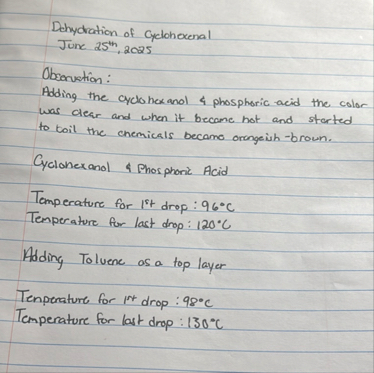 Dehydration of Cyclohexenal
June 25th, 2025
Observation:
Adding the cyclohexanol & phosphoric acid the color
was clear and when it became hot and started
to boil the chemicals became orangeish-brown.
Cyclohexanol & Phosphoric Acid
Temperature for 1st drop : 96°C
Temperature for last drop : 120°C
Adding Toluene as a top layer
Temperature for 1st drop : 98°C
Temperature for last drop : 130°C